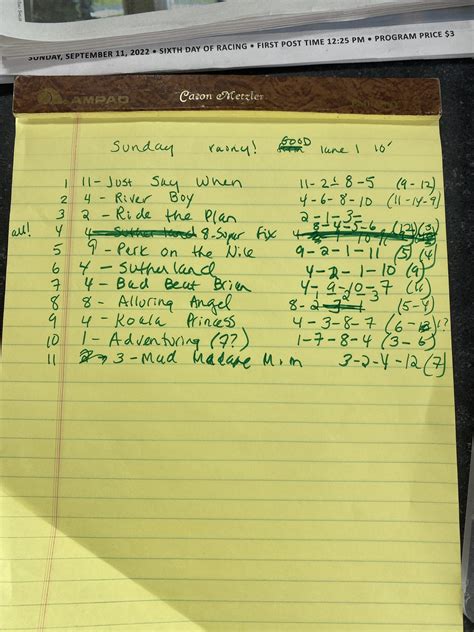 SUNDAY, SEPTEMBER 11, 2022 • SIXTH DAY OF RACING • FIRST POST TIME 12:25 PM • PROGRAM PRICE $3
AMPAD
Sunday rainy! GOOD lane 1 10'
1 11 - Just Say When 11-2-8-5 (9-12)
2 4 - River Boy 4-6-8-10 (11-14-9)
3 2 - Ride the Plan 2-1-3-
all! 4 8-Super Fix 8-4-5-6
5 9 - Perk on the Nile 9-2-1-11 (5) (4)
6 4 - Sutherland 4-2-1-10 (9)
7 4 - Bad Beat Brian 4-9-10-7
8 8 - Alluring Angel 8-2- (5-4)
9 4 - Koala Princess 4-3-8-7
10 1 - Adventuring (7?) 1-7-8-4 (3-6)
11 3 - Mad Madame Mim 3-2-4-12 (7)